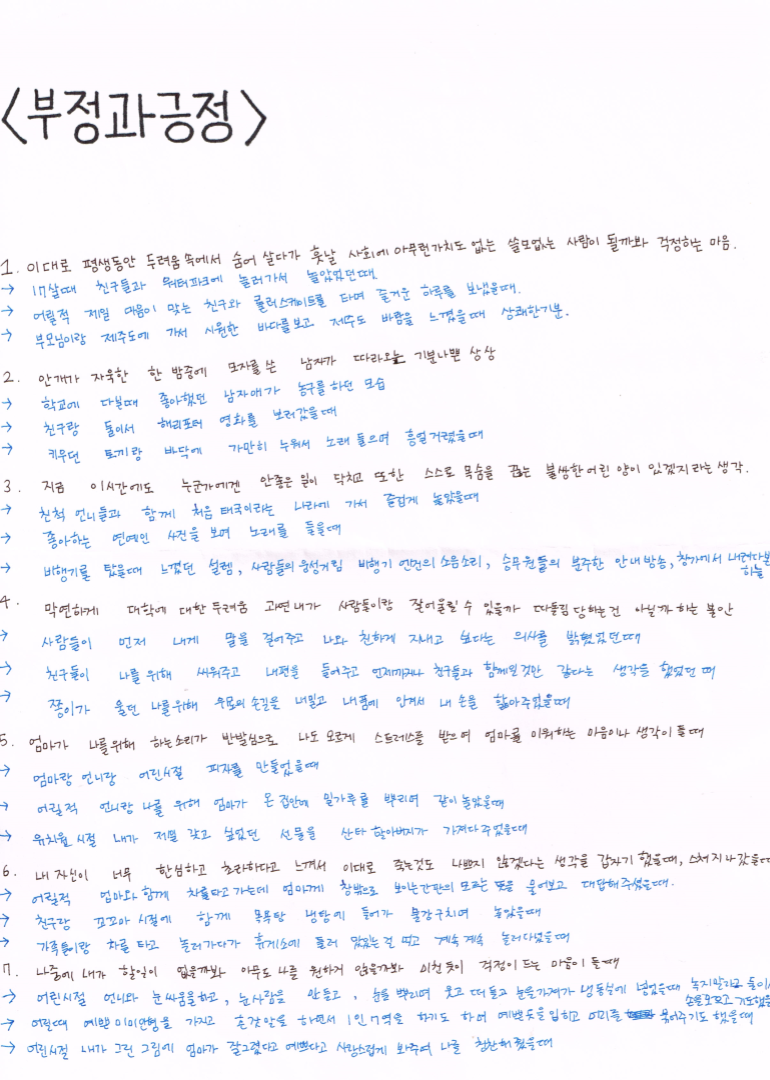 <부정과긍정>
1. 이대로 평생동안 두려움 속에서 숨어 살다가 훗날 사회에 아무런가치도 없는 쓸모없는 사람이 될까봐 걱정하는 마음.
→ 17살때 친구들과 워터파크에 놀러가서 놀았었던때.
→ 어릴적 제일 마음이 맞는 친구와 롤러스케이트를 타며 즐거운 하루를 보냈을때.
→ 부모님이랑 제주도에 가서 시원한 바다를보고 제주도 바람을 느꼈을때 상쾌한기분.
2. 안개가 자욱한 한 밤중에 모자를 쓴 남자가 따라오는 기분나쁜 상상
→ 학교에 다닐때 좋아했던 남자애가 농구를 하던 모습
→ 친구랑 둘이서 해리포터 영화를 보러갔을때
→ 키우던 토끼랑 바닥에 가만히 누워서 노래 들으며 흥얼거렸을때
3. 지금 이시간에도 누군가에겐 안좋은 일이 닥치고 또한 스스로 목숨을 끊는 불쌍한어린 양이 있겠지라는 생각.
→ 친척 언니들과 함께 처음 태국이라는 나라에 가서 즐겁게 놀았을때
→ 좋아하는 연예인 사진을 보며 노래를 들을때
→ 비행기를 탔을때 느꼈던 설렘, 사람들의 웅성거림 비행기 엔진의 소음소리, 승무원들의 분주한 안내방송, 창가에서 내려다본
하늘
4. 막연하게 대학에 대한 두려움 과연내가 사람들이랑 잘어울릴 수 있을까 따돌림 당하는건 아닐까 하는 불안
→ 사람들이 먼저 내게 말을 걸어주고 나와 친하게 지내고 싶다는 의사를 밝혔었던때
→ 친구들이 나를 위해 싸워주고 내편을 들어주고 언제까지나 친구들과 함께일것만 같다는 생각을 했었던 때
→ 쫑이가 울던 나를위해 손길을 내밀고 내품에 안겨서 내 손을 핥아주었을때
5. 엄마가 나를위해 하는소리가 반발심으로 나도 모르게 스트레스를 받으며 엄마를 미워하는 마음이나 생각이 들때
→ 엄마랑 언니랑 어린시절 피자를 만들었을때
→ 어릴적 언니랑 나를 위해 엄마가 온 집안에 밀가루를 뿌리며 같이놀았을때
→ 유치원 시절 내가 제일 갖고 싶었던 선물을 산타 할아버지가 가져다주었을때
6. 내 자신이 너무 한심하고 초라하다고 느껴서 이대로 죽는것도 나쁘지 않겠다는 생각을 갑자기 했을때, 스쳐지나갔을때
→ 어릴적 엄마와함께 차를타고가는데 엄마께 창밖으로 보이는간판의 모르는 뜻을 물어보고 대답해주셨을때.
→ 친구랑 꼬꼬마 시절에 함께 목욕탕 냉탕에 들어가 물장구치며 놀았을때
→ 가족들이랑 차를 타고 놀러가다가 휴게소에 들러 맛있는걸 먹고 계속 계속 놀러다녔을때
7. 나중에 내가 할일이 없을까봐 아무도 나를 원하게 않을까봐 미친듯이 걱정이 드는 마음이 들때
→ 어린시절 언니와 눈싸움을하고, 눈사람을 만들고, 눈을 뿌리며 웃고 떠들고 눈을가져가 냉동실에 넣었을때 녹지말라고 둘이서
손을모으고 기도했을
→ 어린때 예쁜 미미인형을 가지고 소꿉놀이를 하면서 1인7역을 하기도 하며 예쁜옷을입히고 머리를 묶어주기도 했을때
→ 어린시절 내가 그린 그림에 엄마가 잘그렸다고 예쁘다고 사랑스럽게 봐주며 나를 칭찬해줬을때